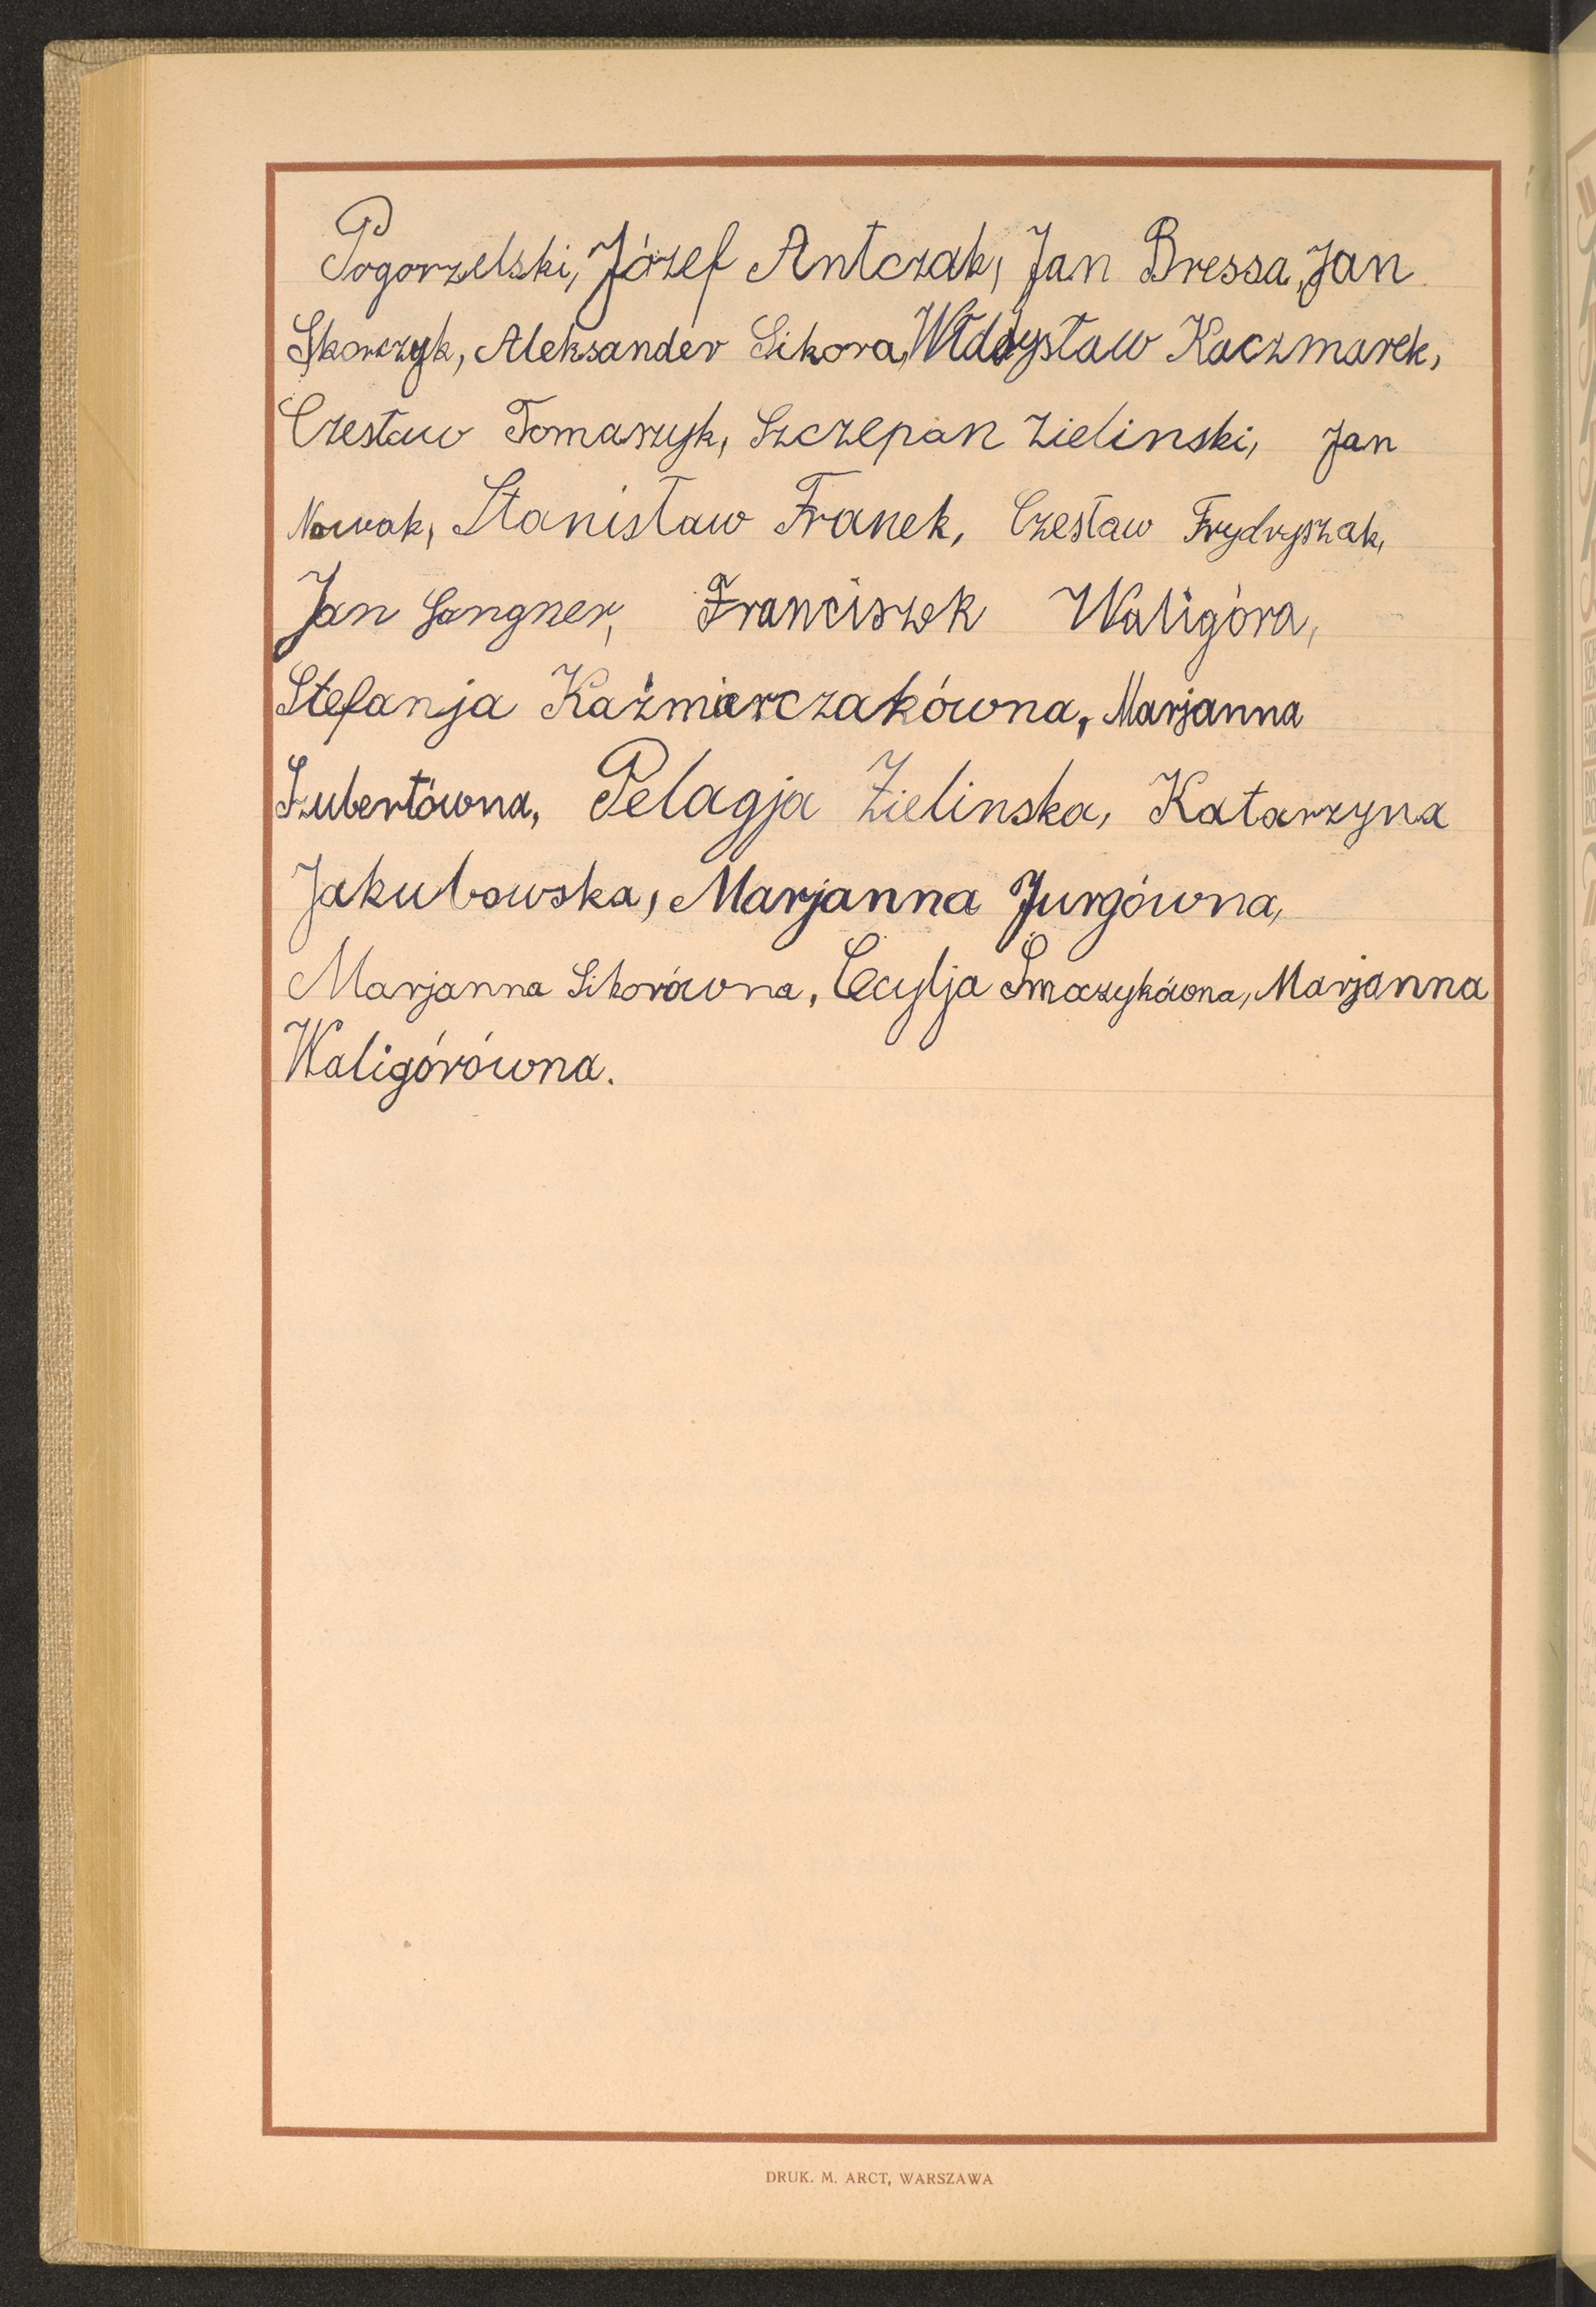 Pogorzelski, Józef Antczak, Jan Bressa, Jan
Skorczyk, Aleksander Sikora, Władysław Kaczmarek,
Czesław Tomaszyk, Szczepan Zielinski, Jan
Nowak, Stanisław Franek, Czesław Frydryszak,
Jan Langner, Franciszek Waligóra,
Stefanja Kaźmierczakówna, Marjanna
Szubertówna, Pelagja Zielinska, Katarzyna
Jakubowska, Marjanna Jurgówna,
Marjanna Sikorówna, Cecylja Smoczykówna, Marjanna
Waligórówna.
DRUK. M. ARCT, WARSZAWA